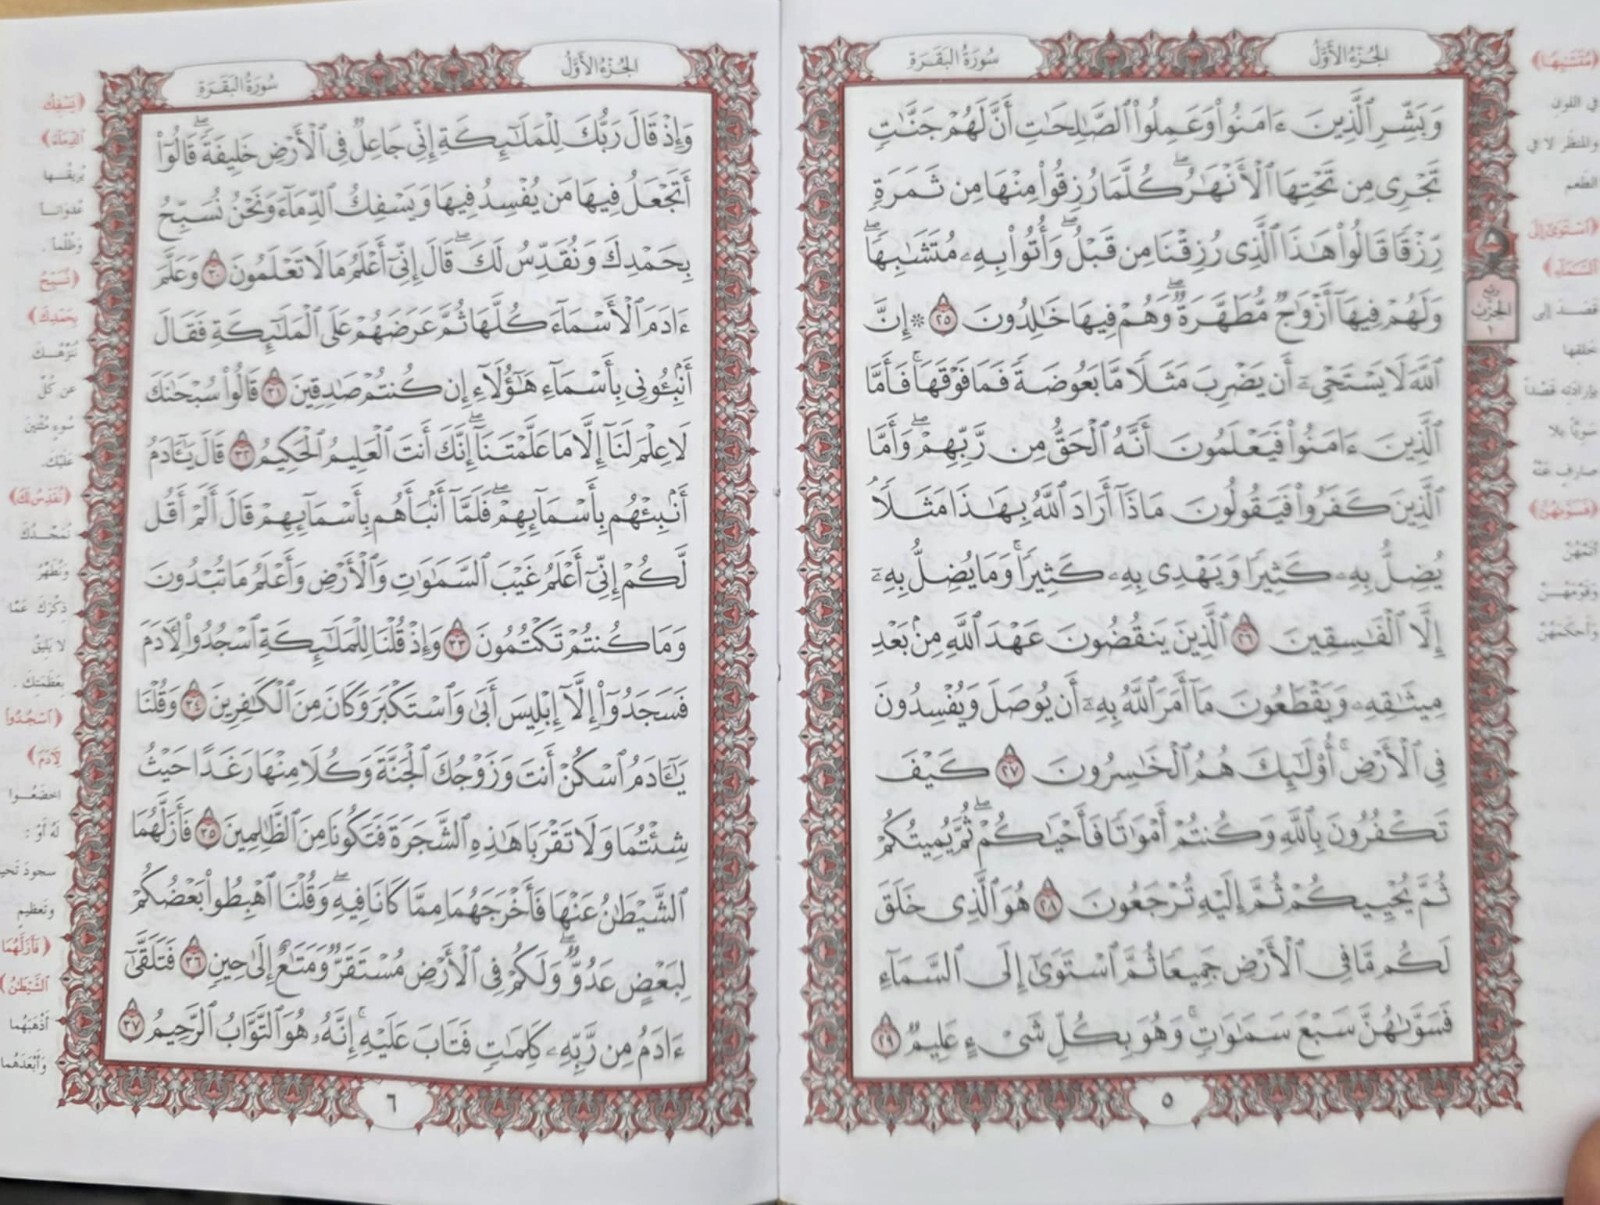 الجزء الأول
سورة البقرة
وَبَشِّرِ ٱلَّذِينَ ءَامَنُوا۟ وَعَمِلُوا۟ ٱلصَّـٰلِحَـٰتِ أَنَّ لَهُمْ جَنَّـٰتٍ
تَجْرِى مِن تَحْتِهَا ٱلْأَنْهَـٰرُ ۖ كُلَّمَا رُزِقُوا۟ مِنْهَا مِن ثَمَرَةٍ
رِّزْقًا قَالُوا۟ هَـٰذَا ٱلَّذِى رُزِقْنَا مِن قَبْلُ ۖ وَأُتُوا۟ بِهِۦ مُتَشَـٰبِهًا ۖ
وَلَهُمْ فِيهَآ أَزْوَٰجٌ مُّطَهَّرَةٌ ۖ وَهُمْ فِيهَا خَـٰلِدُونَ ٢٥ ۞ إِنَّ
ٱللَّهَ لَا يَسْتَحْىِۦٓ أَن يَضْرِبَ مَثَلًا مَّا بَعُوضَةً فَمَا فَوْقَهَا ۚ فَأَمَّا
ٱلَّذِينَ ءَامَنُوا۟ فَيَعْلَمُونَ أَنَّهُ ٱلْحَقُّ مِن رَّبِّهِمْ ۖ وَأَمَّا
ٱلَّذِينَ كَفَرُوا۟ فَيَقُولُونَ مَاذَآ أَرَادَ ٱللَّهُ بِهَـٰذَا مَثَلًا ۘ
يُضِلُّ بِهِۦ كَثِيرًا وَيَهْدِى بِهِۦ كَثِيرًا ۚ وَمَا يُضِلُّ بِهِۦٓ
إِلَّا ٱلْفَـٰسِقِينَ ٢٦ ٱلَّذِينَ يَنقُضُونَ عَهْدَ ٱللَّهِ مِنۢ بَعْدِ
مِيثَـٰقِهِۦ وَيَقْطَعُونَ مَآ أَمَرَ ٱللَّهُ بِهِۦٓ أَن يُوصَلَ وَيُفْسِدُونَ
فِى ٱلْأَرْضِ ۚ أُو۟لَـٰٓئِكَ هُمُ ٱلْخَـٰسِرُونَ ٢٧ كَيْفَ
تَكْفُرُونَ بِٱللَّهِ وَكُنتُمْ أَمْوَٰتًا فَأَحْيَـٰكُمْ ۖ ثُمَّ يُمِيتُكُمْ
ثُمَّ يُحْيِيكُمْ ثُمَّ إِلَيْهِ تُرْجَعُونَ ٢٨ هُوَ ٱلَّذِى خَلَقَ
لَكُم مَّا فِى ٱلْأَرْضِ جَمِيعًا ثُمَّ ٱسْتَوَىٰٓ إِلَى ٱلسَّمَآءِ
فَسَوَّىٰهُنَّ سَبْعَ سَمَـٰوَٰتٍ ۚ وَهُوَ بِكُلِّ شَىْءٍ عَلِيمٌ ٢٩
٥
﴿مُتَشَٰبِهًا﴾
في اللون
والمنظر لا في
الطعم
﴿ٱسْتَوَىٰٓ إِلَى
ٱلسَّمَآءِ﴾
قصد إلى
خلقها
بإرادته قصداً
سوياً بلا
صارف عنه
﴿فَسَوَّىٰهُنَّ﴾
أتمهن
وقومهن
وأحكمهن
ربع
الحزب
١
الجزء الأول
سورة البقرة
وَإِذْ قَالَ رَبُّكَ لِلْمَلَـٰٓئِكَةِ إِنِّى جَاعِلٌ فِى ٱلْأَرْضِ خَلِيفَةً ۖ قَالُوٓا۟
أَتَجْعَلُ فِيهَا مَن يُفْسِدُ فِيهَا وَيَسْفِكُ ٱلدِّمَآءَ وَنَحْنُ نُسَبِّحُ
بِحَمْدِكَ وَنُقَدِّسُ لَكَ ۖ قَالَ إِنِّىٓ أَعْلَمُ مَا لَا تَعْلَمُونَ ٣٠ وَعَلَّمَ
ءَادَمَ ٱلْأَسْمَآءَ كُلَّهَا ثُمَّ عَرَضَهُمْ عَلَى ٱلْمَلَـٰٓئِكَةِ فَقَالَ
أَنۢبِـُٔونِى بِأَسْمَآءِ هَـٰٓؤُلَآءِ إِن كُنتُمْ صَـٰدِقِينَ ٣١ قَالُوا۟ سُبْحَـٰنَكَ
لَا عِلْمَ لَنَآ إِلَّا مَا عَلَّمْتَنَآ ۖ إِنَّكَ أَنتَ ٱلْعَلِيمُ ٱلْحَكِيمُ ٣٢ قَالَ يَـٰٓـَٔادَمُ
أَنۢبِئْهُم بِأَسْمَآئِهِمْ ۖ فَلَمَّآ أَنۢبَأَهُم بِأَسْمَآئِهِمْ قَالَ أَلَمْ أَقُل
لَّكُمْ إِنِّىٓ أَعْلَمُ غَيْبَ ٱلسَّمَـٰوَٰتِ وَٱلْأَرْضِ وَأَعْلَمُ مَا تُبْدُونَ
وَمَا كُنتُمْ تَكْتُمُونَ ٣٣ وَإِذْ قُلْنَا لِلْمَلَـٰٓئِكَةِ ٱسْجُدُوا۟ لِـَٔادَمَ
فَسَجَدُوٓا۟ إِلَّآ إِبْلِيسَ أَبَىٰ وَٱسْتَكْبَرَ وَكَانَ مِنَ ٱلْكَـٰفِرِينَ ٣٤ وَقُلْنَا
يَـٰٓـَٔادَمُ ٱسْكُنْ أَنتَ وَزَوْجُكَ ٱلْجَنَّةَ وَكُلَا مِنْهَا رَغَدًا حَيْثُ
شِئْتُمَا وَلَا تَقْرَبَا هَـٰذِهِ ٱلشَّجَرَةَ فَتَكُونَا مِنَ ٱلظَّـٰلِمِينَ ٣٥ فَأَزَلَّهُمَا
ٱلشَّيْطَـٰنُ عَنْهَا فَأَخْرَجَهُمَا مِمَّا كَانَا فِيهِ ۖ وَقُلْنَا ٱهْبِطُوا۟ بَعْضُكُمْ
لِبَعْضٍ عَدُوٌّ ۖ وَلَكُمْ فِى ٱلْأَرْضِ مُسْتَقَرٌّ وَمَتَـٰعٌ إِلَىٰ حِينٍ ٣٦ فَتَلَقَّىٰٓ
ءَادَمُ مِن رَّبِّهِۦ كَلِمَـٰتٍ فَتَابَ عَلَيْهِ ۚ إِنَّهُۥ هُوَ ٱلتَّوَّابُ ٱلرَّحِيمُ ٣٧
٦
﴿يَسْفِكُ
ٱلدِّمَآءَ﴾
يريقها
عدواناً
وظلماً .
﴿نُسَبِّحُ
بِحَمْدِكَ﴾
ننزهك
عن كل
سوء مثنين
عليك.
﴿نُقَدِّسُ لَكَ﴾
نمجدك
ونطهر
ذكرك عما
لا يليق
بعظمتك .
﴿ٱسْجُدُوا۟
لِـَٔادَمَ﴾
اخضعوا
له أو :
سجود تحية
وتعظيم
﴿فَأَزَلَّهُمَا
ٱلشَّيْطَٰنُ﴾
أذهبهما
وأبعدهما